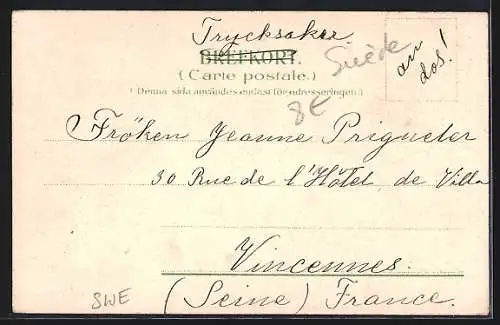 Trycksaker
BREFKORT.
Suède
au
dos!
(Carte postale.)
(Denna sida användes endast för adresseringen.)
8€
Fröken Jeanne Prigneter
30 Rue de l'Hôtel de Villa
Vincennes.
SWE
(Seine) France.